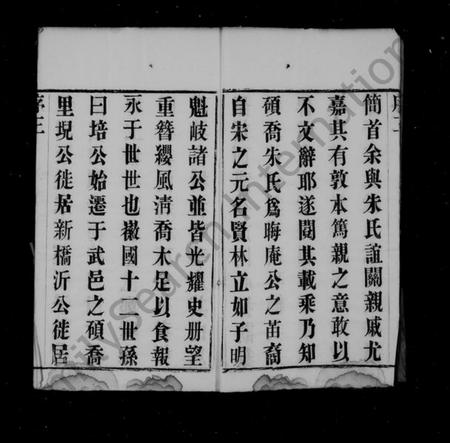 簡首余與朱氏誼關親戚尤
嘉其有敦本篤親之意敢以
不文辭耶遂閱其載乘乃知
碩喬朱氏為晦庵公之苗裔
自宋之元名賢林立如子明
魁岐諸公並皆光耀史册望
重簪纓風清喬木足以食報
永于世世也徽國十二世孫
曰培公始遷于武邑之碩喬
里現公徙居新橋沂公徙居